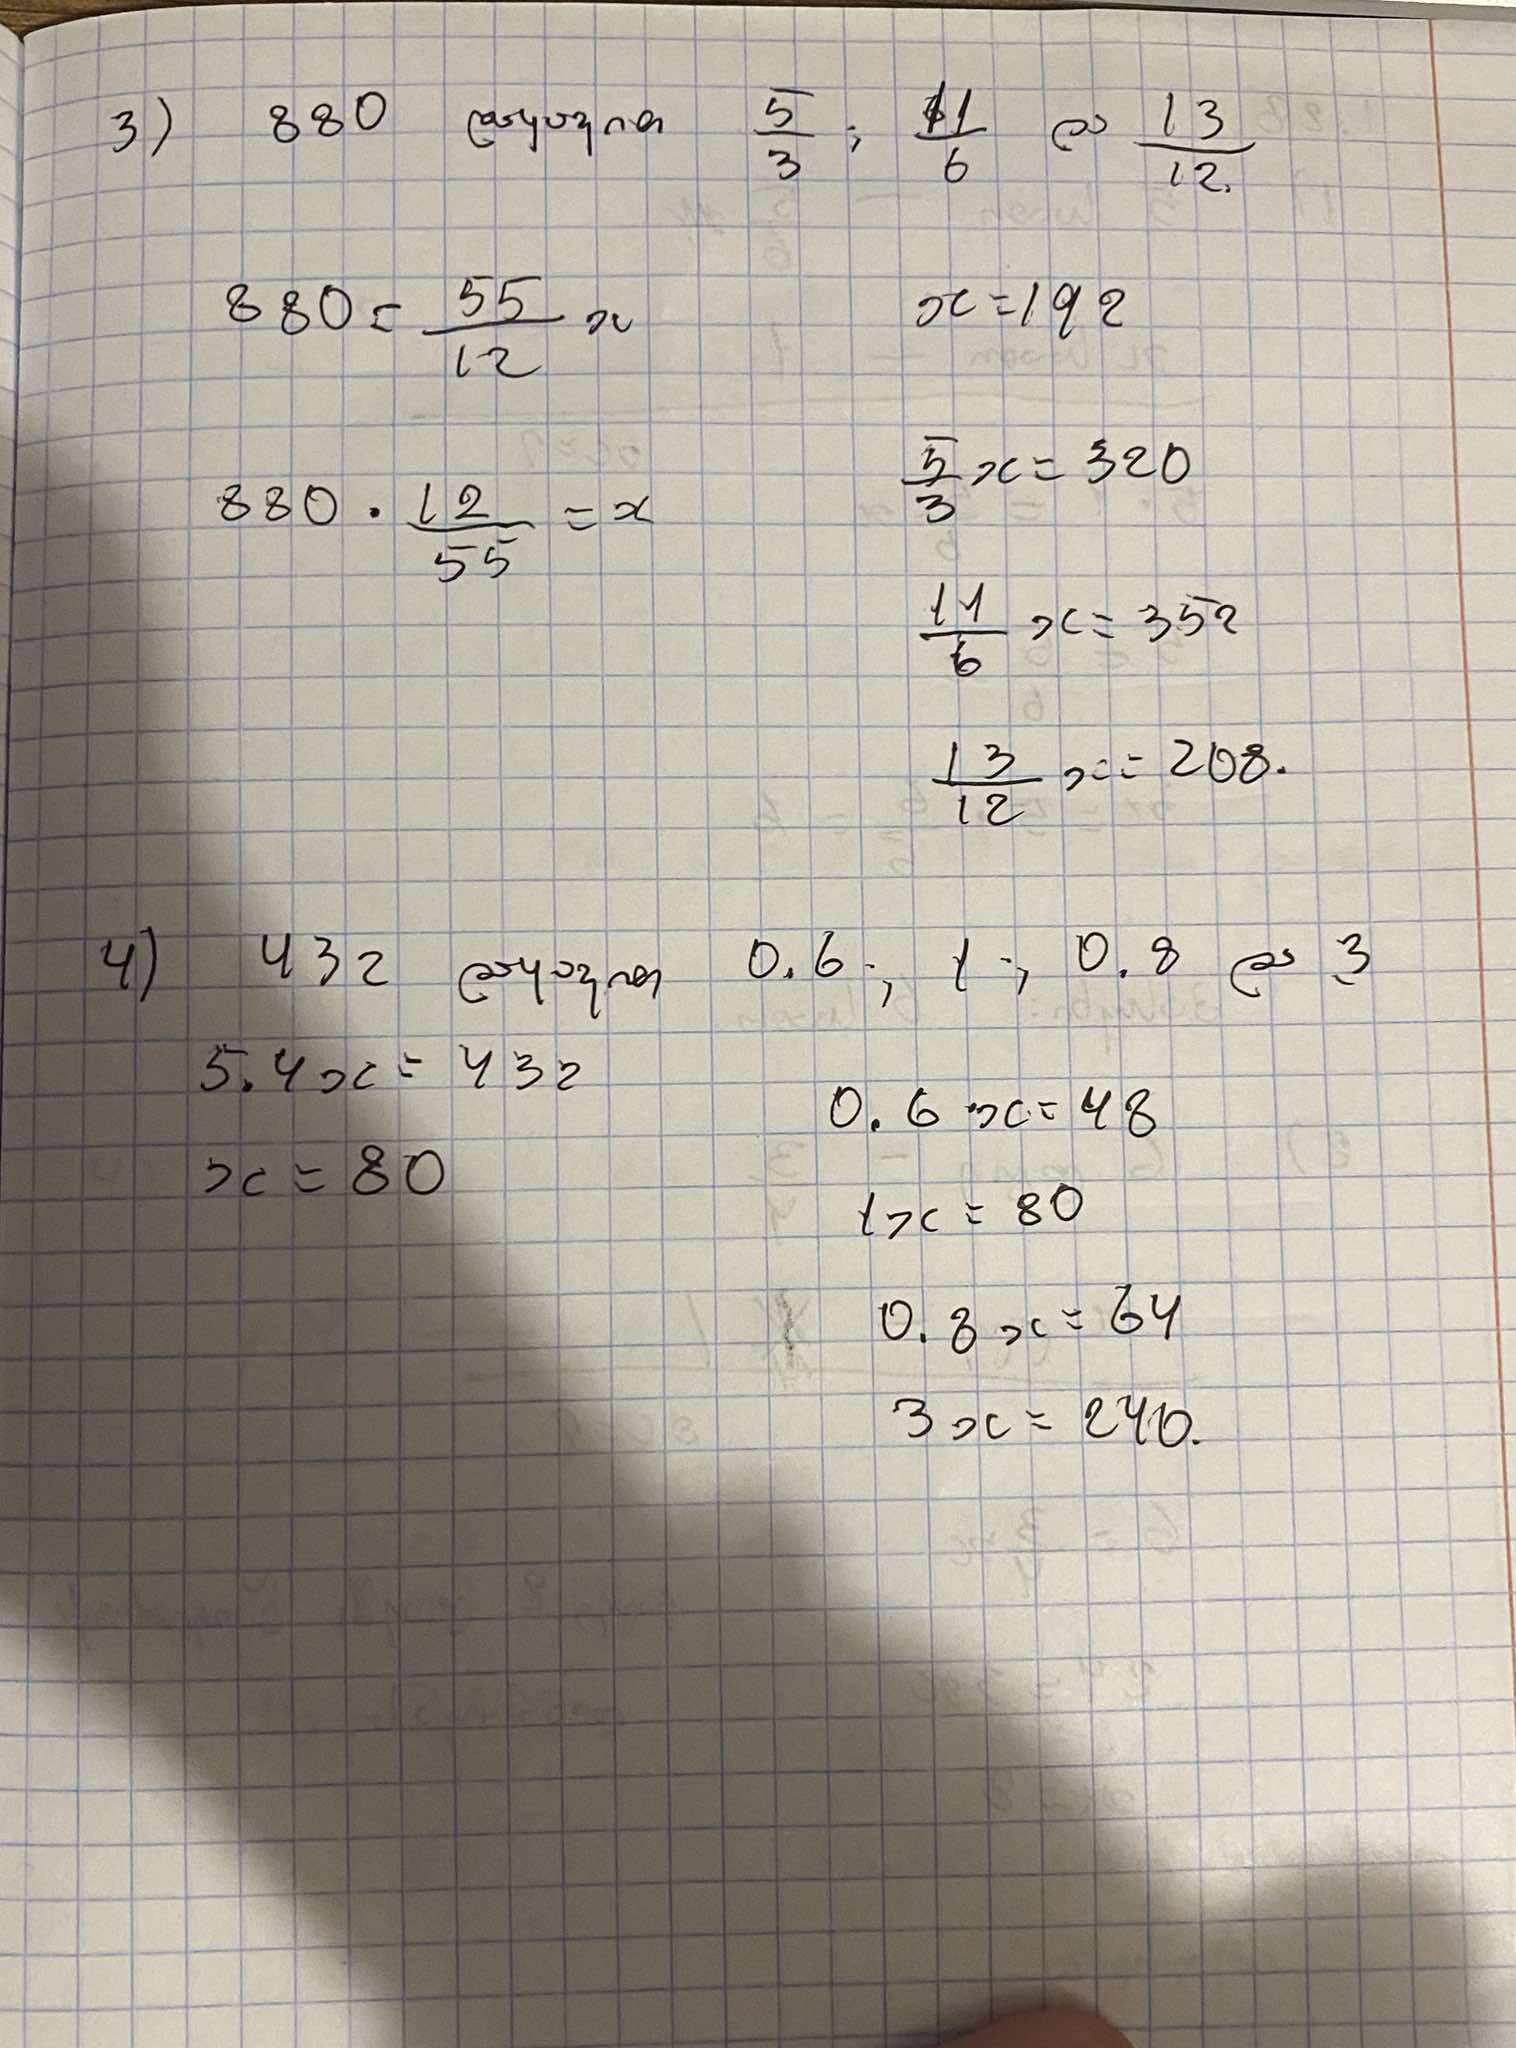 3) 880 დაყავით 5/3 ; 11/6 და 13/12.
880 = 55/12 x
880 · 12/55 = x
x = 192
5/3 x = 320
11/6 x = 352
13/12 x = 208.
4) 432 დაყავით 0.6 ; 1 ; 0.8 და 3
5.4x = 432
x = 80
0.6x = 48
1x = 80
0.8x = 64
3x = 240.